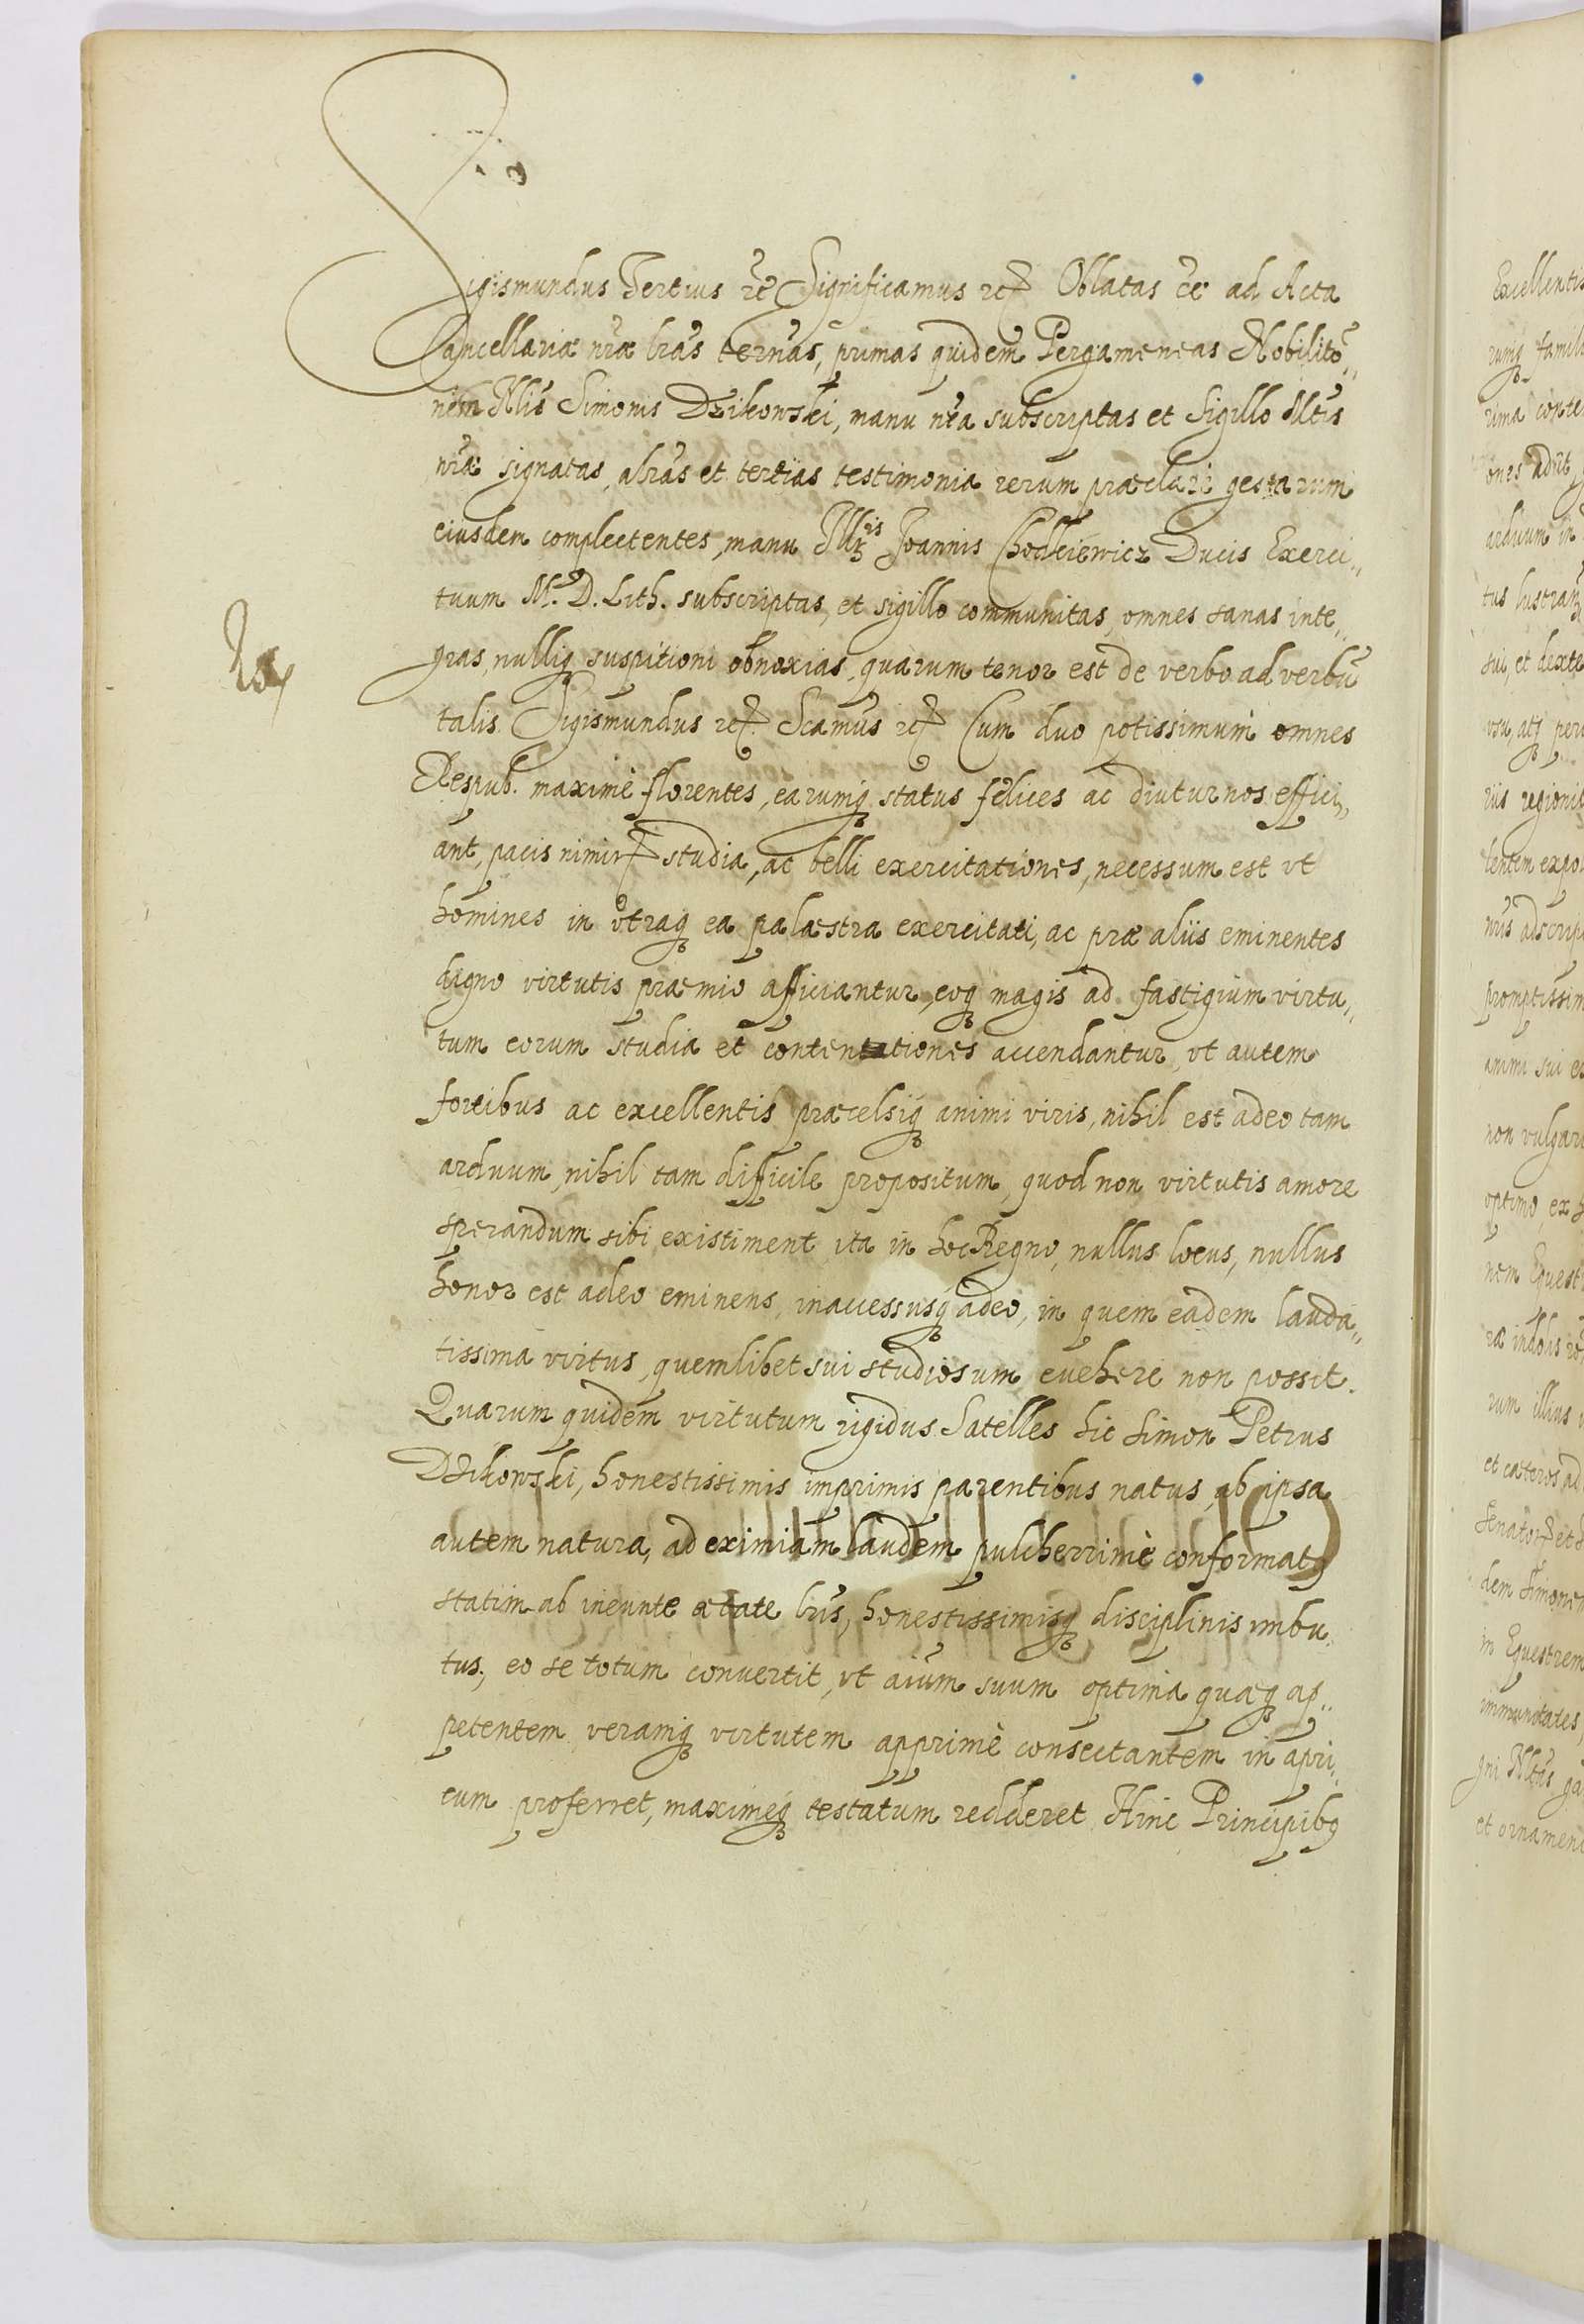 Sigismundus Tertius etc Significamus etc Oblatas eē ad Acta
Cancellariæ nræ lras ternas, primas quidem Pergameneas Nobilitõ„
nem Nlis Simonis Dzikowski, manu nra subscriptas et Sigillo Mtis
nræ signatas, alras et tertias testimonia rerum præclare gestarum
eiusdem complectentes, manu Joannis Chodkiewicz Ducis Exerci„
tuum M. D. Lith. subscriptas, et sigillo communitas, omnes sanas inte„
gras, nulliq suspitioni obnoxias, quarum tenor est de verbo ad verbũ
talis. Sigismundus etc. Scamus etc Cum duo potissimum omnes
Respub. maximè florentes, earumq status felices ac diuturnos effici„
ant, pacis nimir studia, ac belli exercitationes, necessum est vt
homines in vtraq ea palæstra exercitati, ac præ aliis eminentes
digno virtutis præmio afficiantur, eoq magis ad fastigium virtu„
tum eorum studia et contentationes accendantur, vt autem
fortibus ac excellentis præcelsiq animi viris, nihil est adeo tam
arduum, nihil tam difficile propositum, quod non virtutis amore
sperandum sibi existiment, ita in hoc Regno, nullus locus, nullus
honor est adeo eminens, inaccessusq adeo, in quem eadem lauda„
tissima virtus, quemlibet sui studiosum euehere non possit.
Quarum quidem virtutum rigidus Satelles hic Simon Petrus
Dzikowski, honestissimis imprimis parentibus natus, ab ipsa
autem natura, ad eximiam laudem pulcherrimè conformatq
statim ab ineunte ætate lris, honestissimisq disciplinis imbu„
tus, eo se totum conuertit, vt aium suum optima quæq ap„
petentem veramq virtutem apprimè consectantem in apri„
cum proferret, maximeq testatum redderet. Hinc Principibq